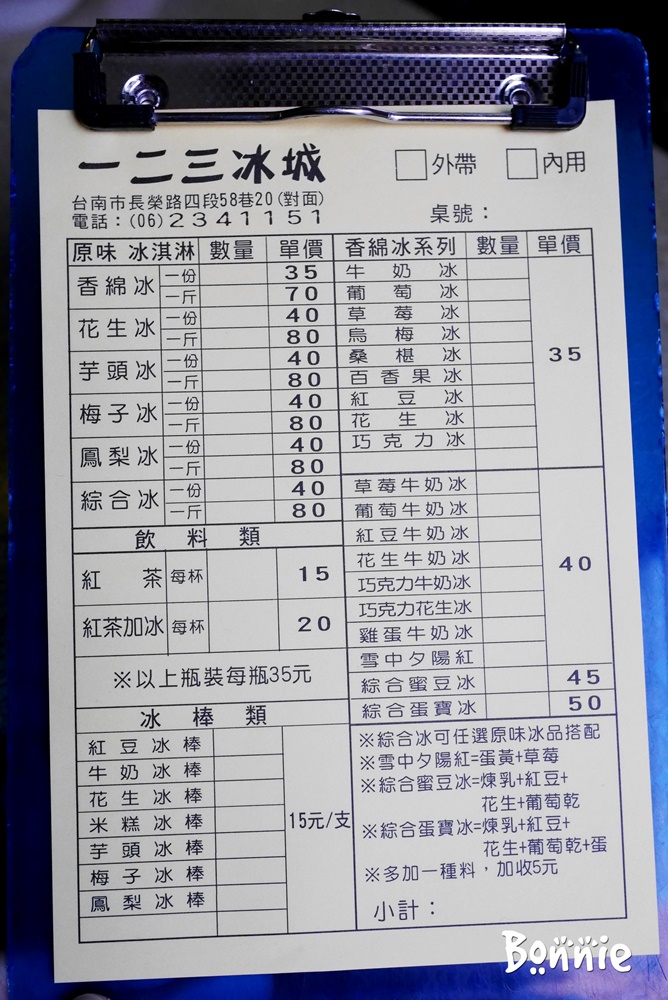 一二三冰城
□外帶 □內用
台南市長榮路四段58巷20(對面)
電話：(06)2341151
桌號：
原味 冰淇淋 數量 單價
香綿冰 一份 35
一斤 70
花生冰 一份 40
一斤 80
芋頭冰 一份 40
一斤 80
梅子冰 一份 40
一斤 80
鳳梨冰 一份 40
一斤 80
綜合冰 一份 40
一斤 80
飲料類
紅茶 每杯 15
紅茶加冰 每杯 20
※以上瓶裝每瓶35元
冰棒類
紅豆冰棒
牛奶冰棒
花生冰棒
米糕冰棒
芋頭冰棒
梅子冰棒
鳳梨冰棒
15元/支
香綿冰系列 數量 單價
牛奶冰
葡萄冰
草莓冰
烏梅冰
桑椹冰
百香果冰
紅豆冰
花生冰
巧克力冰
35
草莓牛奶冰
葡萄牛奶冰
紅豆牛奶冰
花生牛奶冰
巧克力牛奶冰
巧克力花生冰
雞蛋牛奶冰
雪中夕陽紅
40
綜合蜜豆冰 45
綜合蛋寶冰 50
※綜合冰可任選原味冰品搭配
※雪中夕陽紅=蛋黃+草莓
※綜合蜜豆冰=煉乳+紅豆+
花生+葡萄乾
※綜合蛋寶冰=煉乳+紅豆+
花生+葡萄乾+蛋
※多加一種料，加收5元
小計：
Bonnie